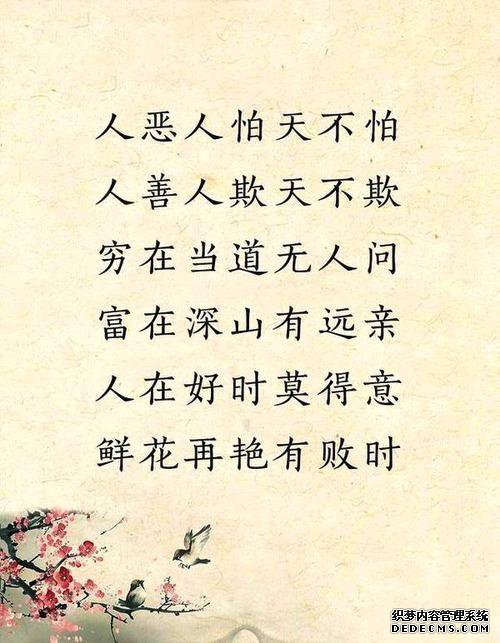 人恶人怕天不怕
人善人欺天不欺
穷在当道无人问
富在深山有远亲
人在好时莫得意
鲜花再艳有败时
织梦内容管理系统
DEDECMS.COM